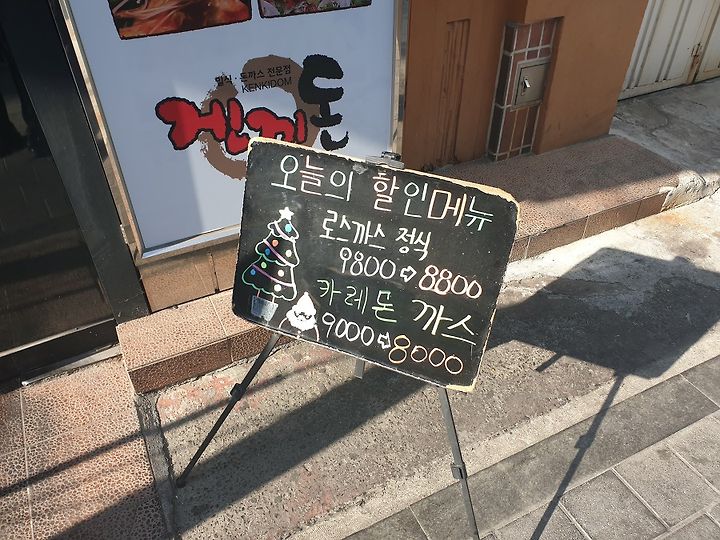 밥식·돈까스 전문점
KENKIDOM
겐끼돈
오늘의 할인메뉴
로스까스 정식
9800⇨8800
카레돈 까스
9000⇨8000